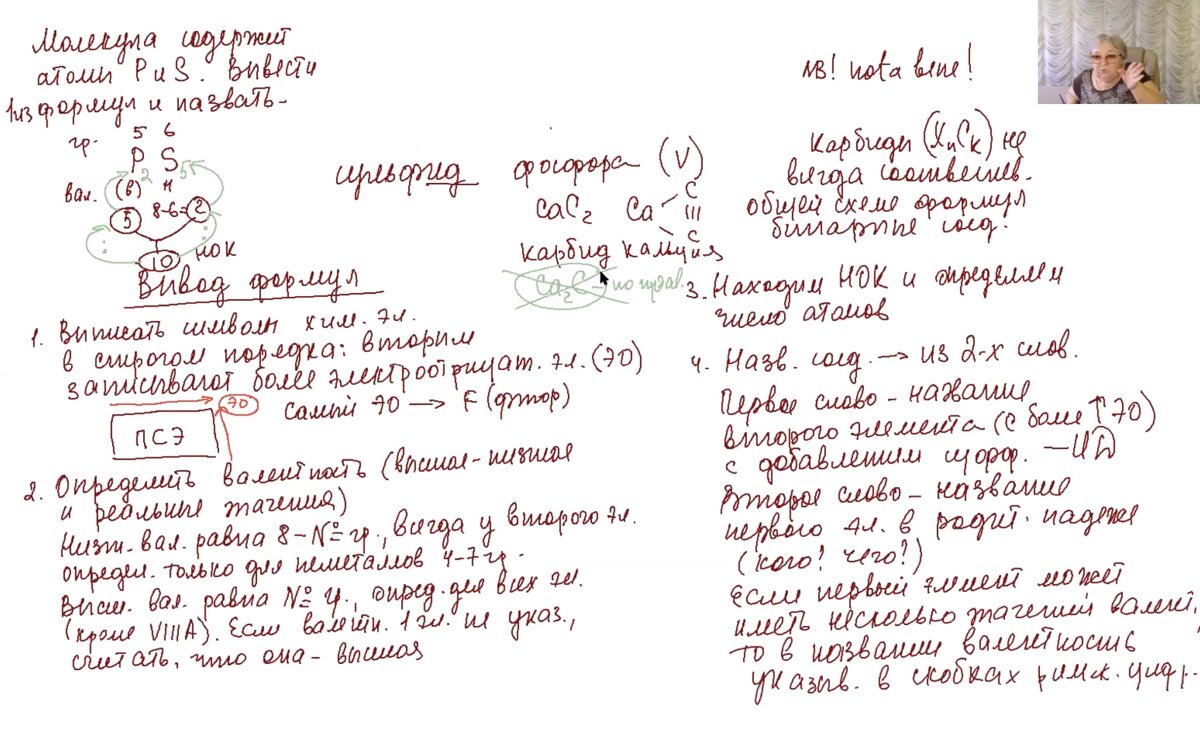 Молекула содержит
атомы P и S. Вывести
1 из формул и назвать-
гр. 5 6
P₂ S₅
вал. (в) н
5 8-6=2
: :
10 НОК
Вывод формул
1. Выписать символы хим. эл.
в строгом порядке: вторым
записывают более электроотрицат. эл. (ЭО)
ПСЭ ЭО самый ЭО → F (фтор)
2. Определить валентность (высшая-низшая
и реальные значения)
Низш. вал. равна 8-№ гр., всегда у второго эл.
определ. только для неметаллов 4-7 гр.
Высш. вал. равна № гр., опред. для всех эл.
(кроме VIIIA). Если валентн. 1 эл. не указ.,
считать, что она - высшая
сульфид фосфора (V)
CaC₂ Ca C ||| C
карбид кальция
Ca₂C - по прав.
NB! nota bene!
Карбиды (XnCk) не
всегда соответств.
общей схеме формул
бинарных соед.
3. Находим НОК и определяем
число атомов
4. Назв. соед. → из 2-х слов.
Первое слово - название
второго элемента (с более ↑ ЭО)
с добавлением суфф. -ИД
Второе слово - название
первого эл. в родит. падеже
(кого? чего?)
Если первый элемент может
иметь несколько значений валент.,
то в названии валентность
указыв. в скобках римск. цифр.